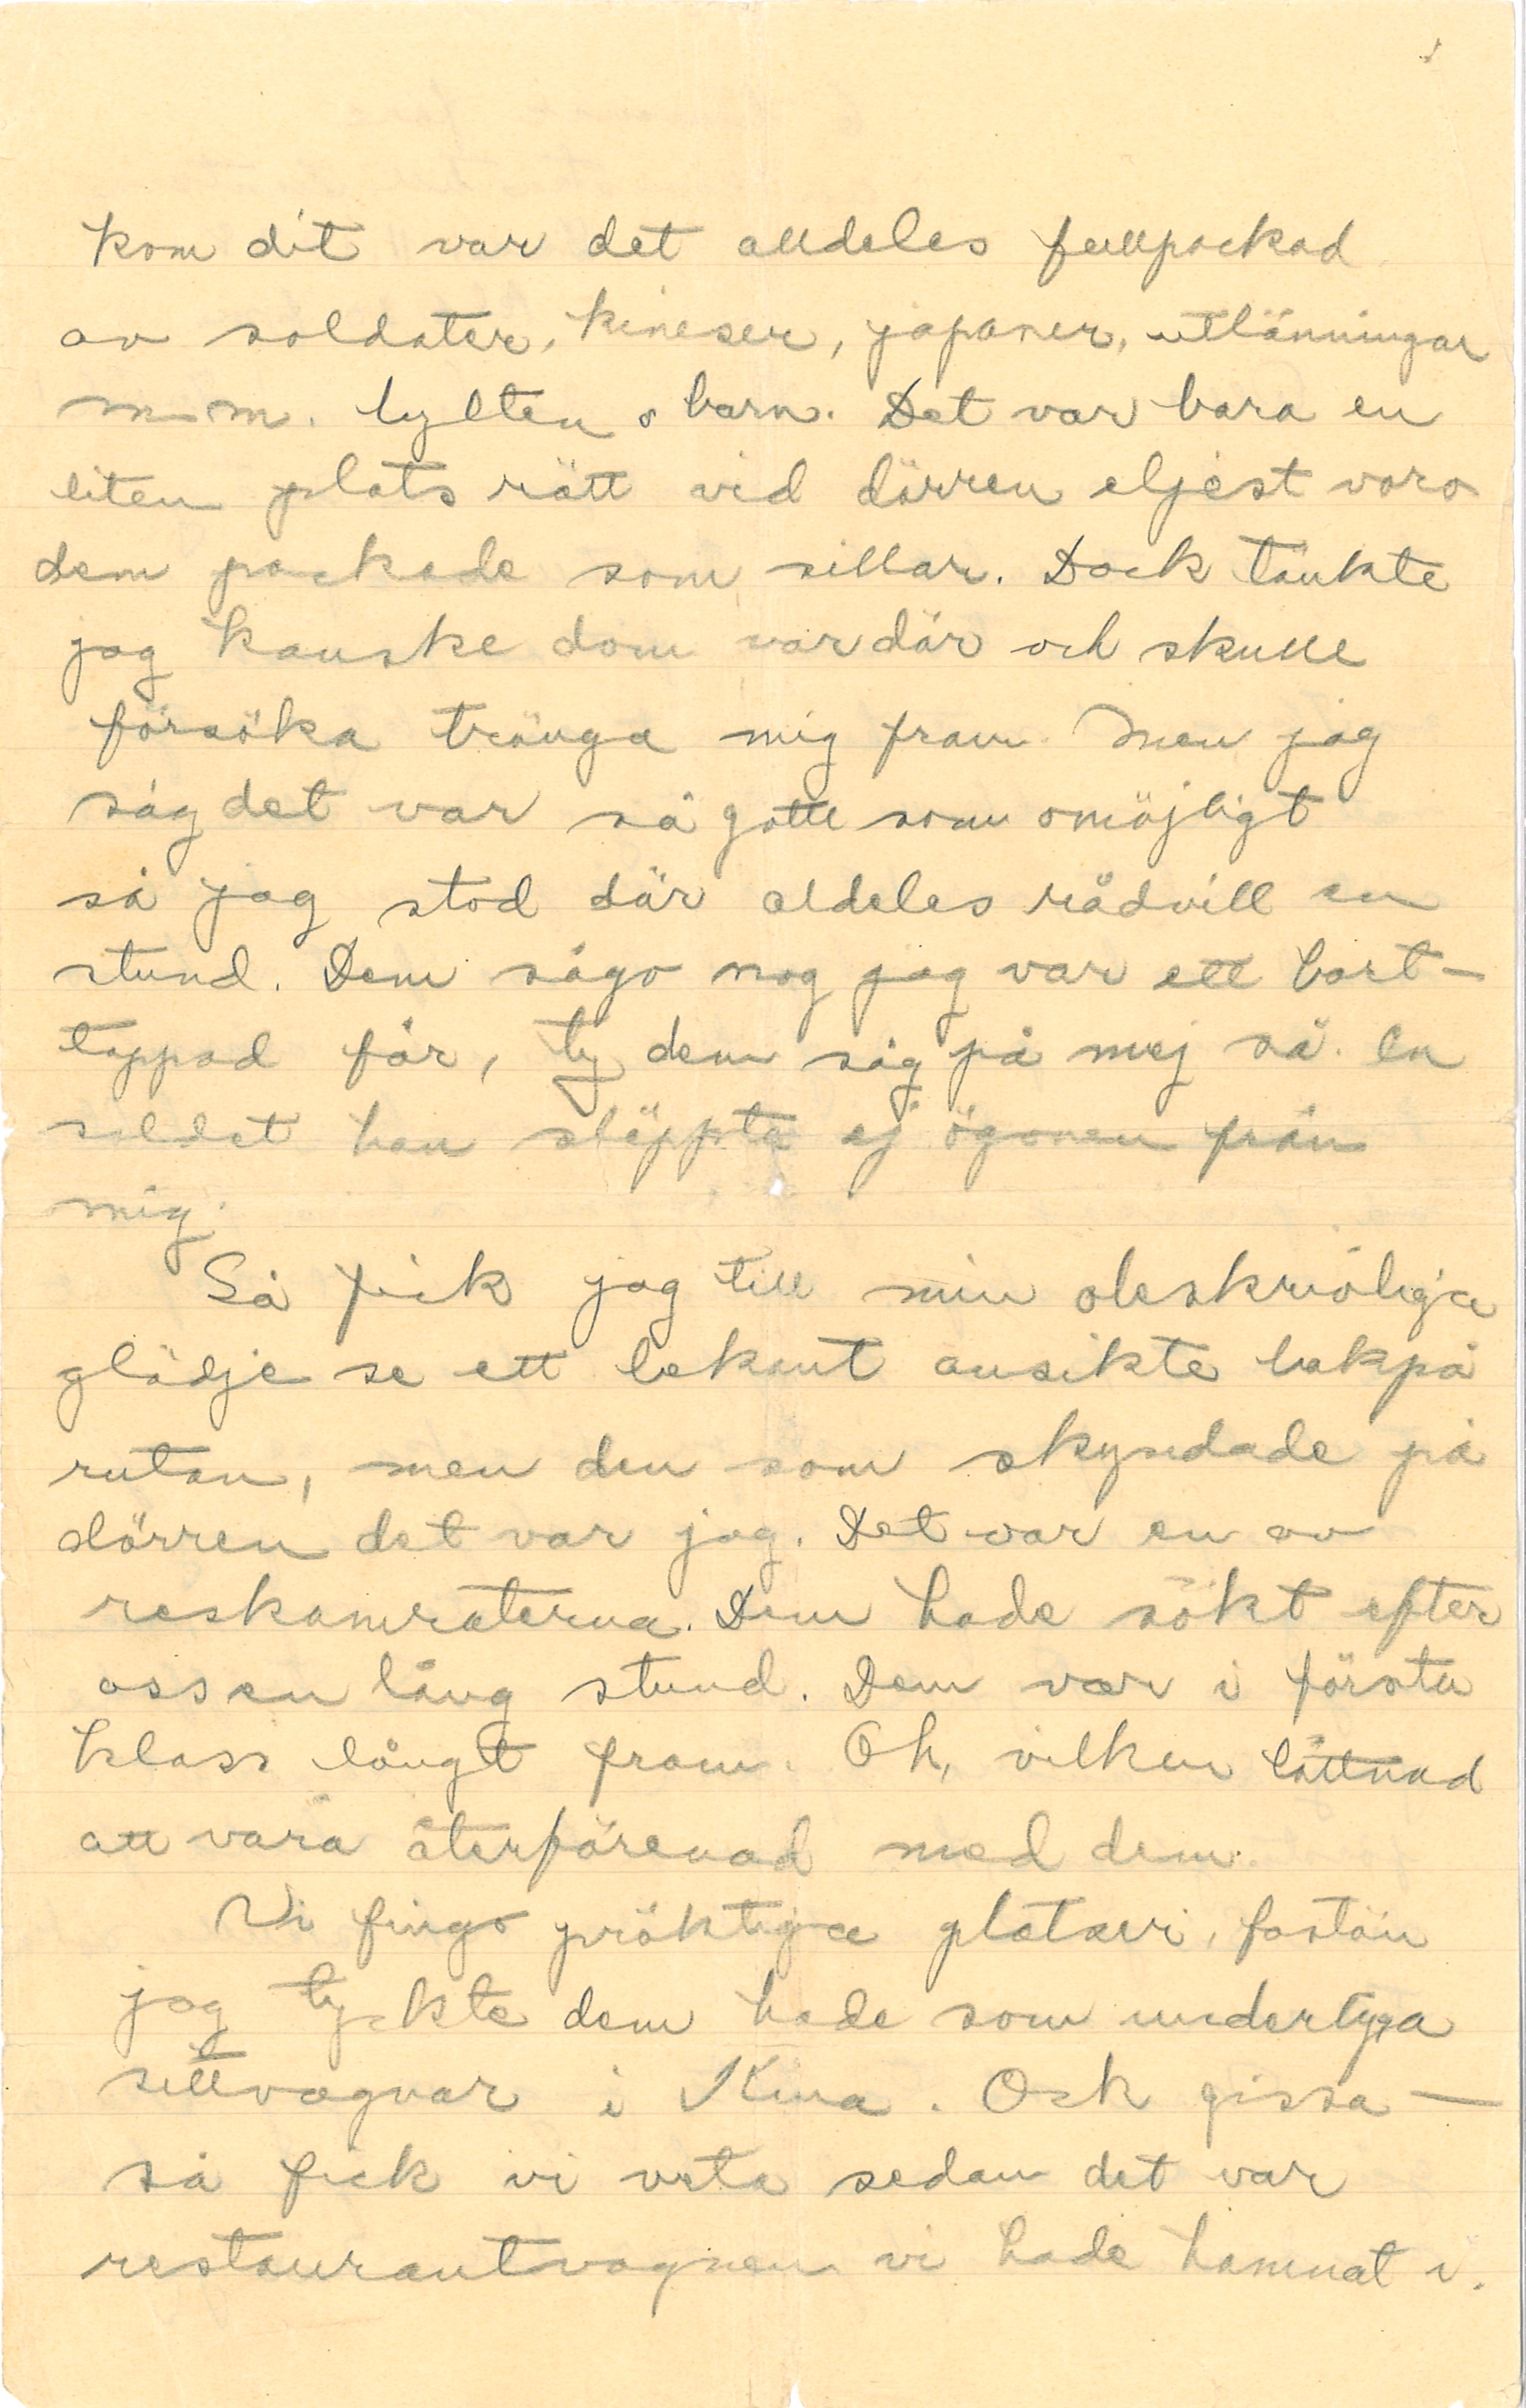 kom dit var det alldeles fullpackad
av soldater, kineser, japaner, utlänningar
m.m. bylten o barn. Det var bara en
liten plats rätt vid dörren eljest voro
dem packade som sillar. Dock tänkte
jag kanske dom var där och skulle
försöka tränga mig fram. Men jag
såg det var så gott som omöjligt
så jag stod där alldeles rådvill en
stund. Dem sågo nog jag var ett bort-
tappad får, ty dem såg på mej så. En
soldat han släppte ej ögonen från
mig.
Så fick jag till min obeskrivliga
glädje se ett bekant ansikte bakpå
rutan, men den som skyndade på
dörren det var jag. Det var en av
reskamraterna. Dem hade sökt efter
oss en lång stund. Dem var i första
klass långt fram. Oh, vilken lättnad
att vara återförenad med dem.
Vi fingo präktiga platser, fastän
jag tyckte dem hade som underliga
sittvagnar i Kina. Och gissa —
så fick vi veta sedan det var
restaurantvagnen vi hade hamnat i.